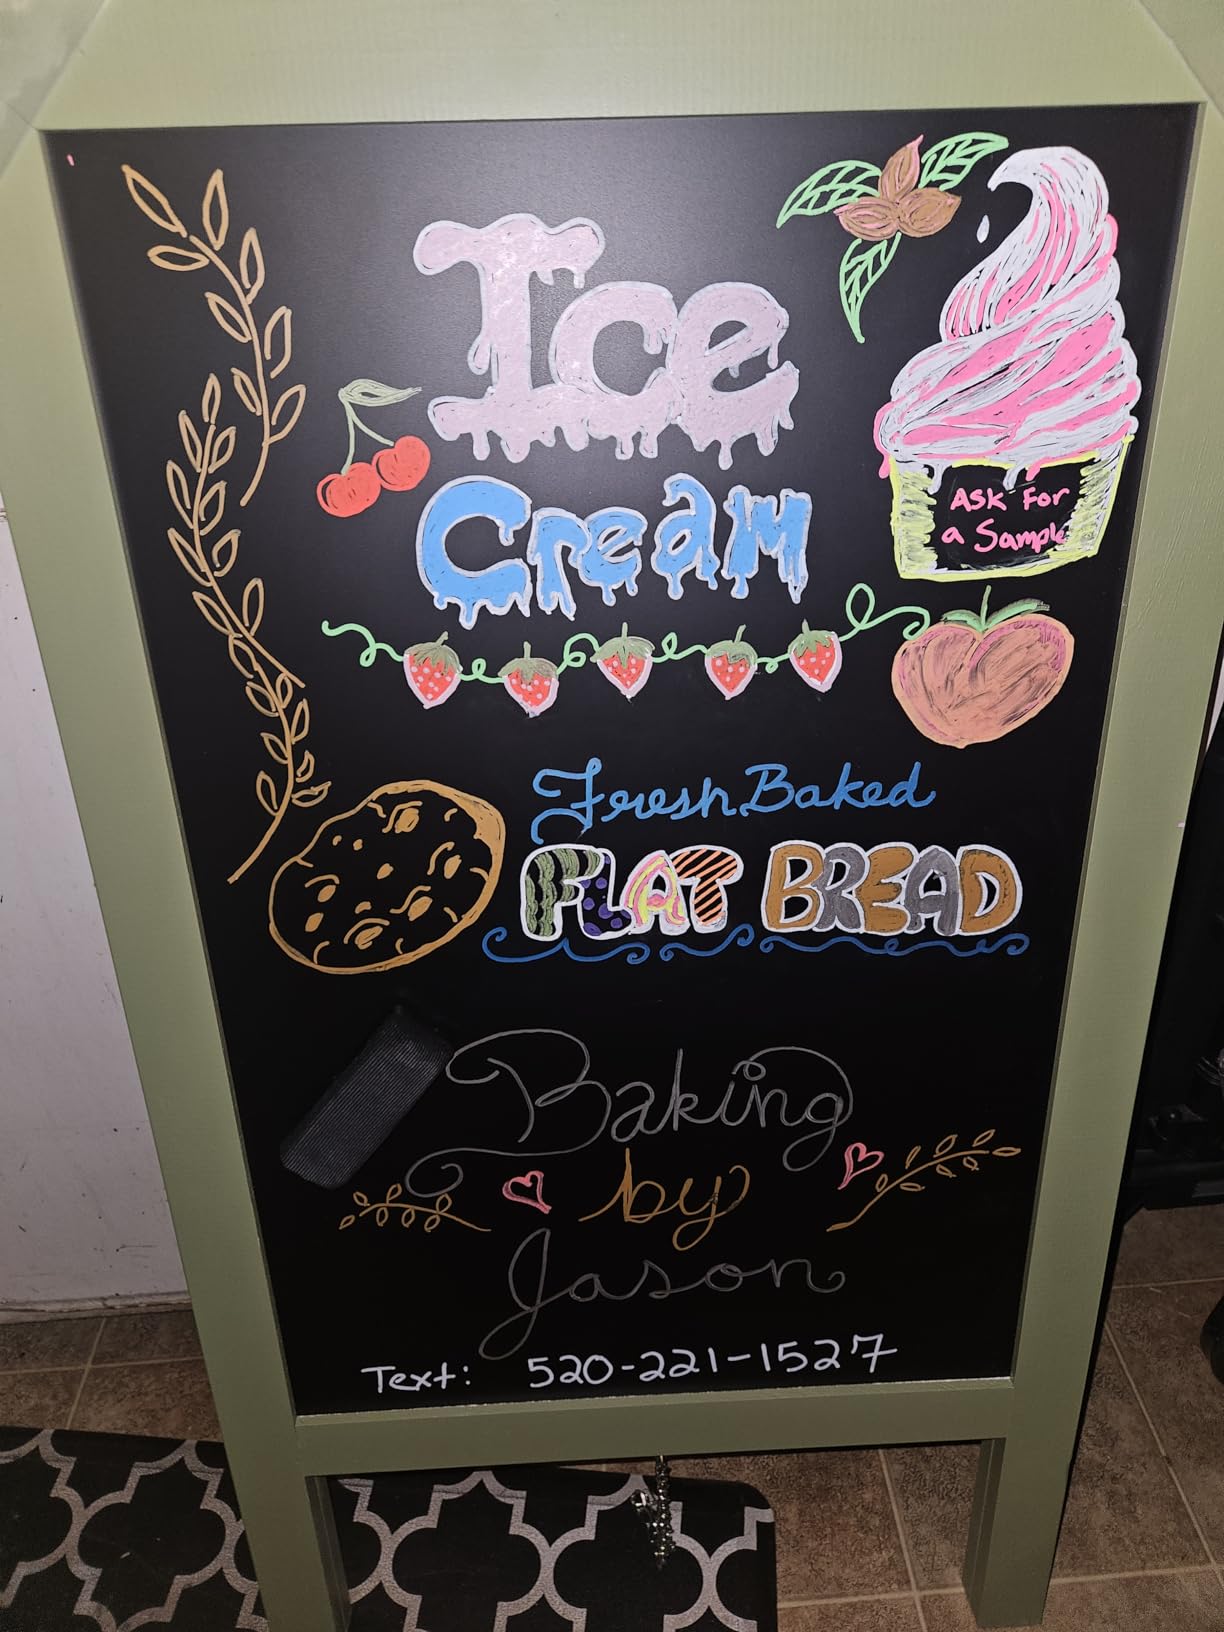 Ice
Cream
Ask For
a Sample
Fresh Baked
FLAT BREAD
Baking
by
Jason
Text: 520-221-1527